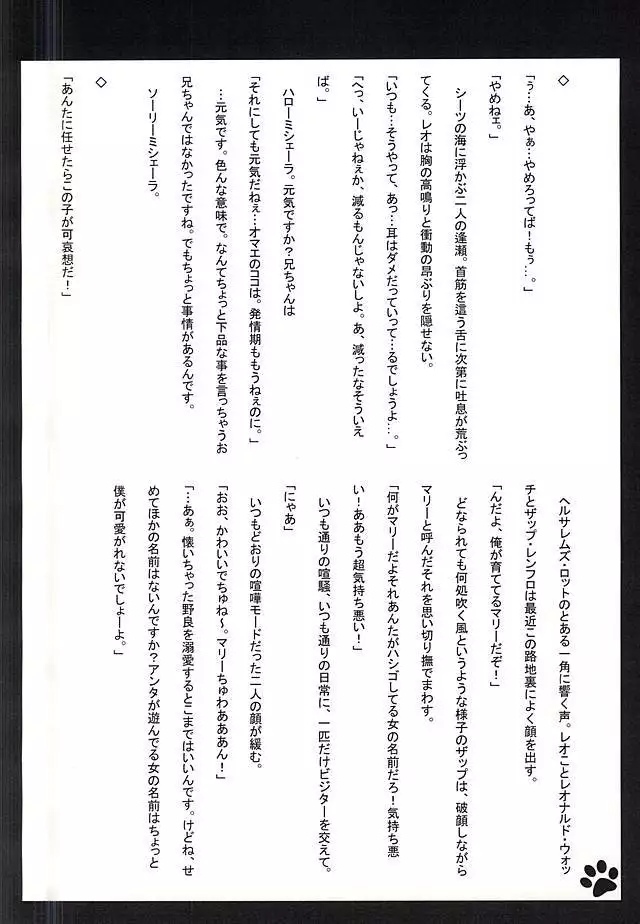 ◇
「ぅ…あ、やぁ…やめろってば！もぅ…。」
「やめねェ。」
　シーツの海に浮かぶ二人の逢瀬。首筋を這う舌に次第に吐息が荒ぶっ
てくる。レオは胸の高鳴りと衝動の昂ぶりを隠せない。
「いつも…そうやって、あっ…耳はダメだっていって…るでしょうよ…。」
「へっ、いーじゃねぇか、減るもんじゃないしよ。あ、減ったなそういえ
ば。」
　ハローミシェーラ。元気ですか？兄ちゃんは
「それにしても元気だねぇ…オマエのココは。発情期ももうねぇのに。」
　…元気です。色んな意味で。なんてちょっと下品な事を言っちゃうお
兄ちゃんではなかったですね。でもちょっと事情があるんです。
　ソーリーミシェーラ。
◇
「あんたに任せたらこの子が可哀想だ！」
　ヘルサレムズ・ロットのとある一角に響く声。レオことレオナルド・ウォッ
チとザップ・レンフロは最近この路地裏によく顔を出す。
「んだよ、俺が育ててるマリーだぞ！」
　どなられても何処吹く風というような様子のザップは、破顔しながら
マリーと呼んだそれを思い切り撫でまわす。
「何がマリーだよそれあんたがハシゴしてる女の名前だろ！気持ち悪
い！ああもう超気持ち悪い！」
　いつも通りの喧騒、いつも通りの日常に、一匹だけビジターを交えて。
「にゃあ」
　いつもどおりの喧嘩モードだった二人の顔が緩む。
「おお、かわいいでちゅね～。マリーちゅわあああん！」
「…あぁ。懐いちゃった野良を溺愛するとこまではいいんです。けどね、せ
めてほかの名前はないんですか？アンタが遊んでる女の名前はちょっと
僕が可愛がれないでしょーよ。」